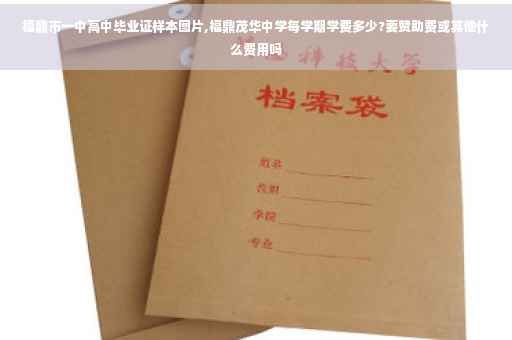 福鼎市一中高中毕业证样本图片,福鼎茂华中学每学期学费多少?要赞助费或其他什
么费用吗
科技大学
档案袋
姓名
学院
专业